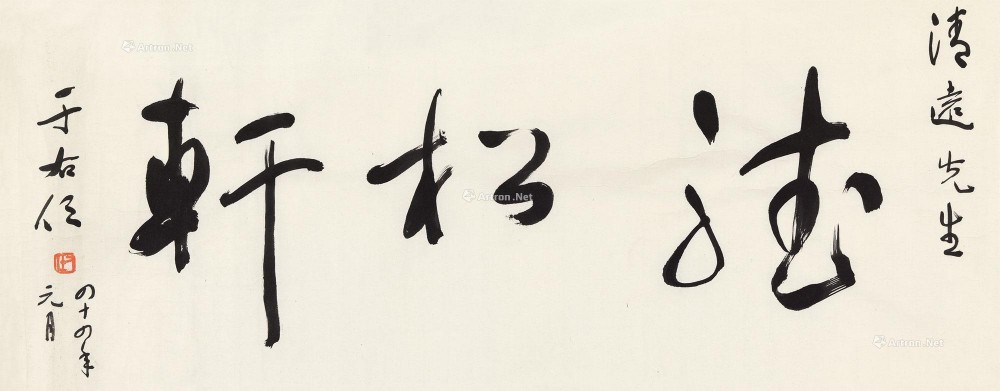 清遠先生
聽松軒
于右任
四十四年
元月
Artron.Net
Artron.Net
Artron.Net